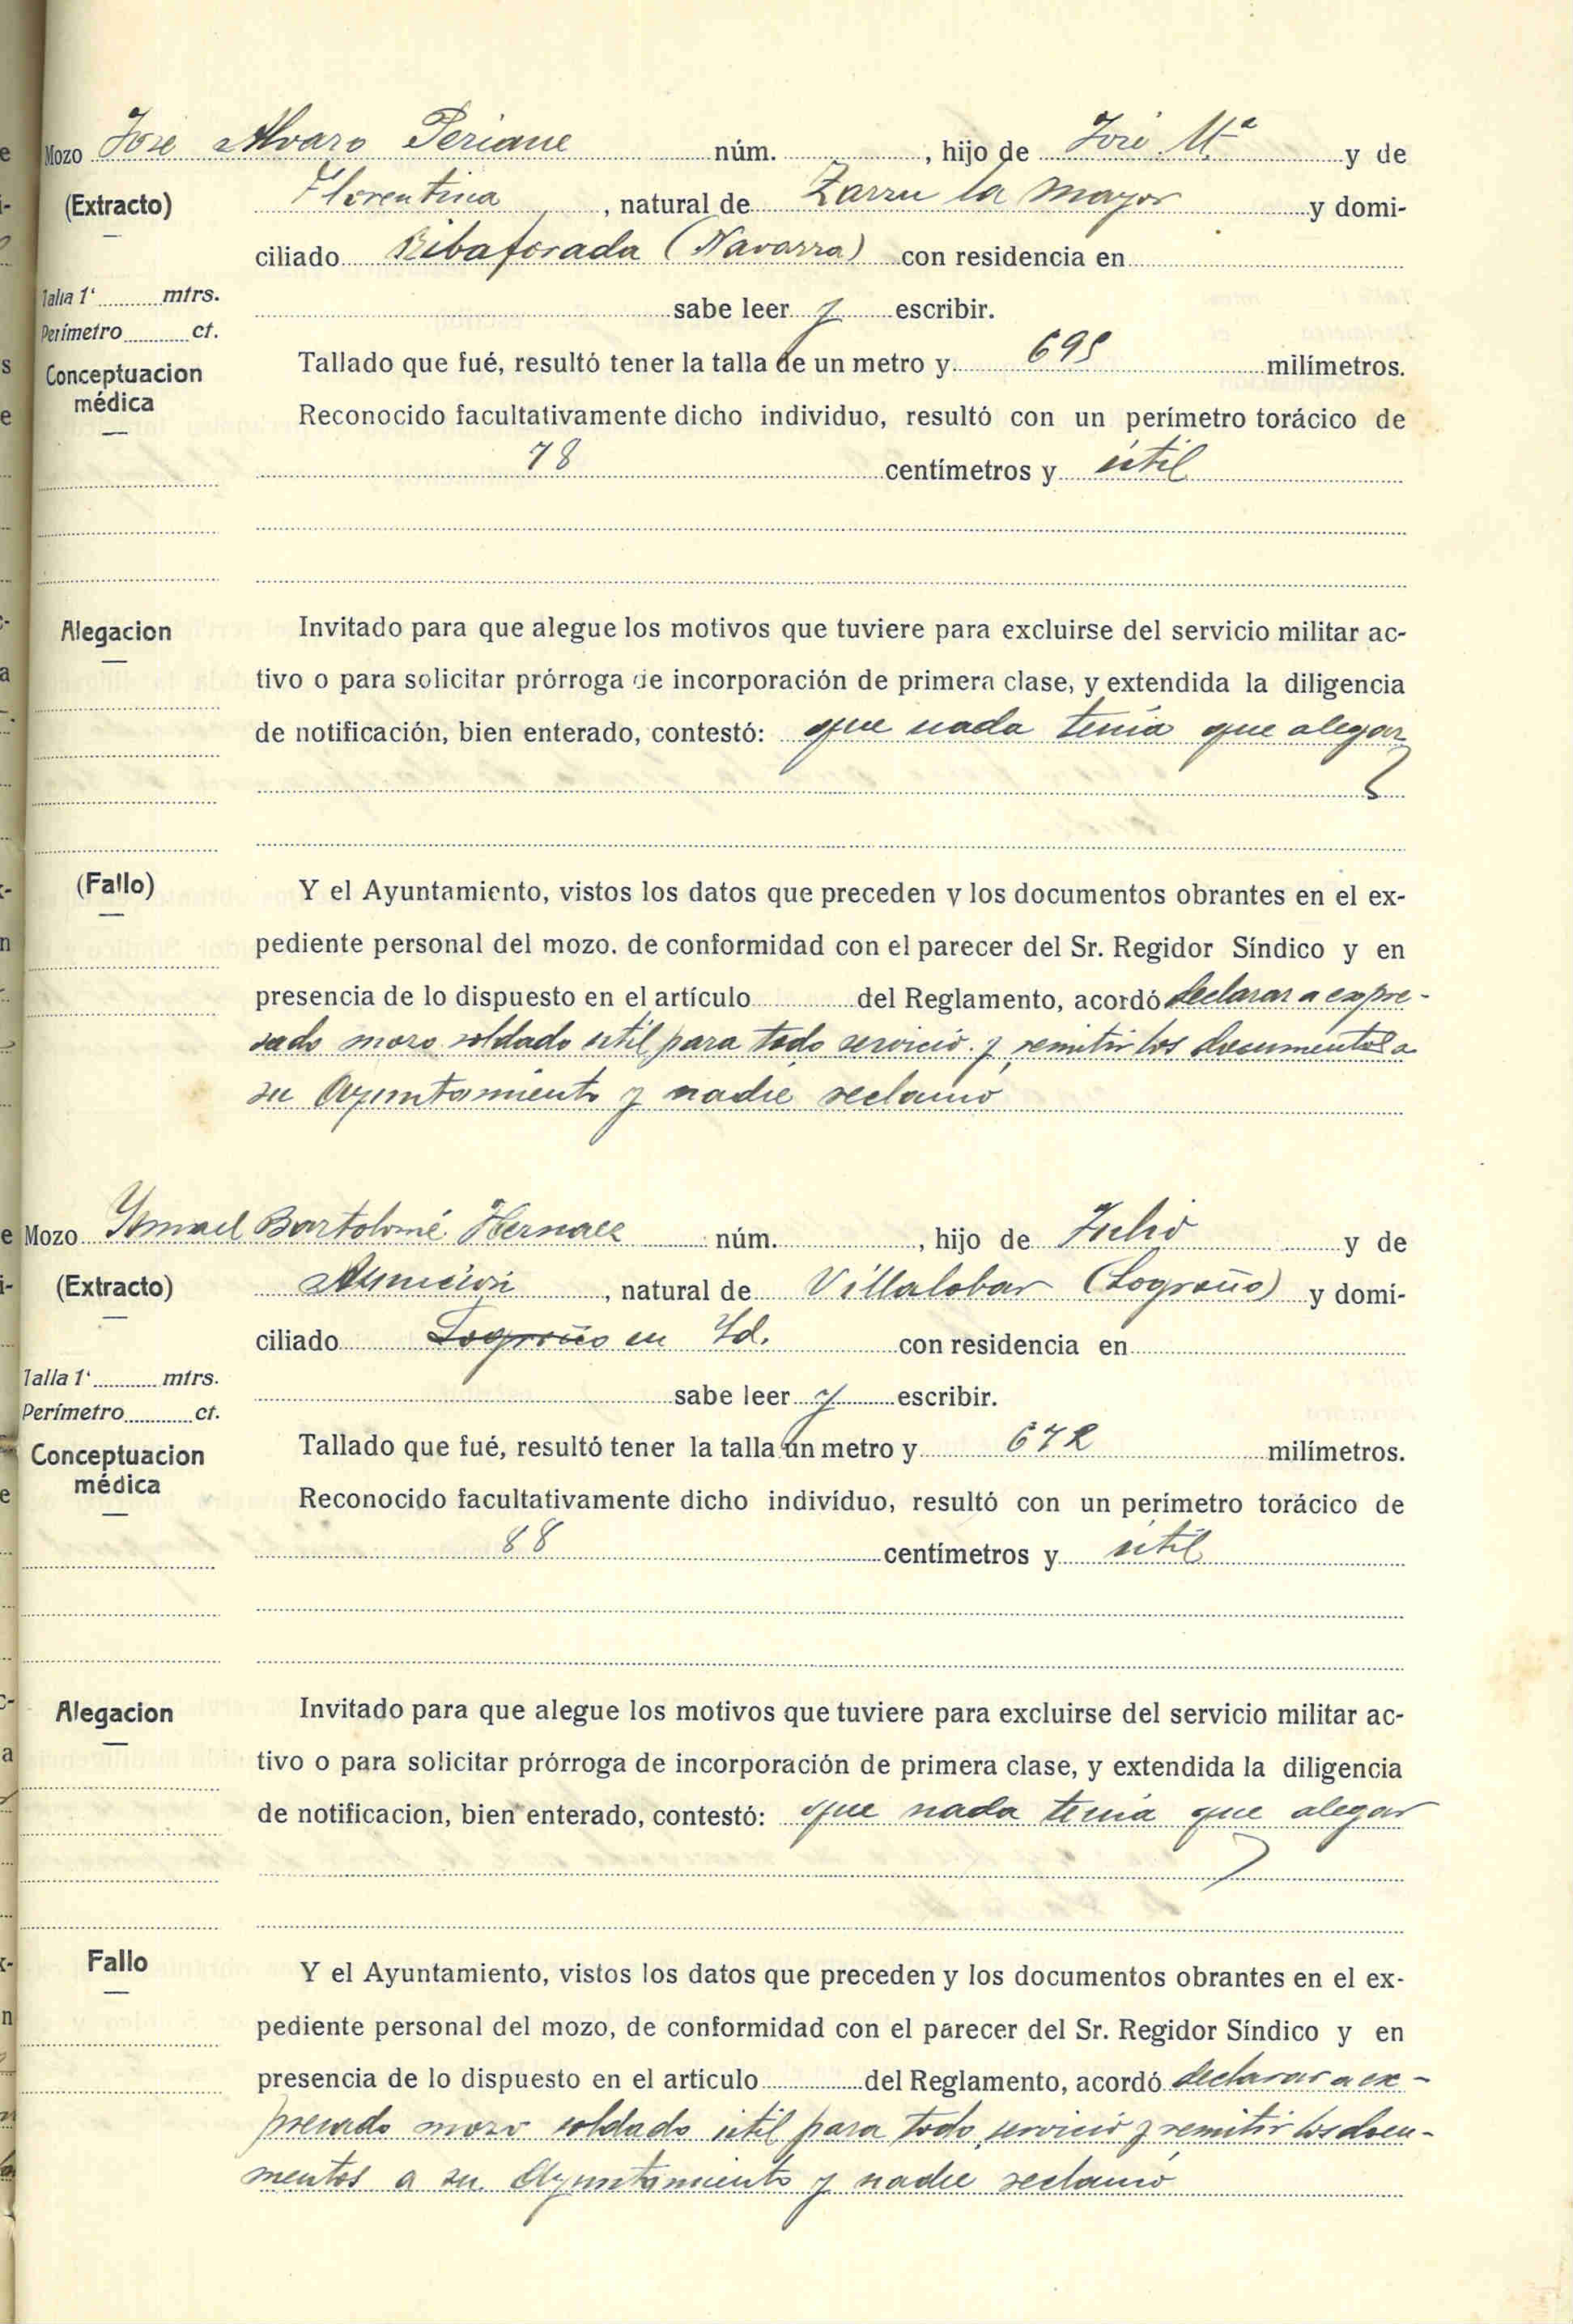 Mozo Jose Alvaro Periane núm. , hijo de José M.ª y de
(Extracto) Florentina , natural de Zarza la Mayor y domi-
ciliado Ribaforada (Navarra) con residencia en
Talla 1' mtrs. sabe leer y escribir.
Perímetro ct.
Tallado que fué, resultó tener la talla de un metro y 695 milímetros.
Conceptuacion
médica
Reconocido facultativamente dicho individuo, resultó con un perímetro torácico de
78 centímetros y útil
Alegacion Invitado para que alegue los motivos que tuviere para excluirse del servicio militar ac-
tivo o para solicitar prórroga de incorporación de primera clase, y extendida la diligencia
de notificación, bien enterado, contestó: que nada tenia que alegar
(Fallo) Y el Ayuntamiento, vistos los datos que preceden y los documentos obrantes en el ex-
pediente personal del mozo. de conformidad con el parecer del Sr. Regidor Síndico y en
presencia de lo dispuesto en el artículo del Reglamento, acordó declarar a expre-
sado mozo soldado util para todo servicio y remitir los documentos a
su Ayuntamiento y nadie reclamó
Mozo Ysmael Bartolomé Hernaez núm. , hijo de Julio y de
(Extracto) Asunción , natural de Villalobar (Logroño) y domi-
ciliado Logroño en Yd. con residencia en
Talla 1' mtrs. sabe leer y escribir.
Perímetro ct.
Tallado que fué, resultó tener la talla un metro y 672 milímetros.
Conceptuacion
médica
Reconocido facultativamente dicho indivíduo, resultó con un perímetro torácico de
88 centímetros y útil
Alegacion Invitado para que alegue los motivos que tuviere para excluirse del servicio militar ac-
tivo o para solicitar prórroga de incorporación de primera clase, y extendida la diligencia
de notificacion, bien enterado, contestó: que nada tenia que alegar
Fallo Y el Ayuntamiento, vistos los datos que preceden y los documentos obrantes en el ex-
pediente personal del mozo, de conformidad con el parecer del Sr. Regidor Síndico y en
presencia de lo dispuesto en el artículo del Reglamento, acordó declarar a ex-
presado mozo soldado útil para todo servicio y remitir los docu-
mentos a su Ayuntamiento y nadie reclamó